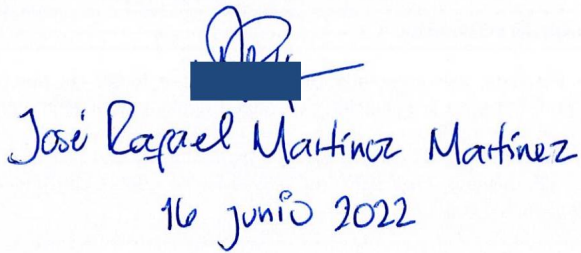 José Rafael Martínez Martínez
16 junio 2022